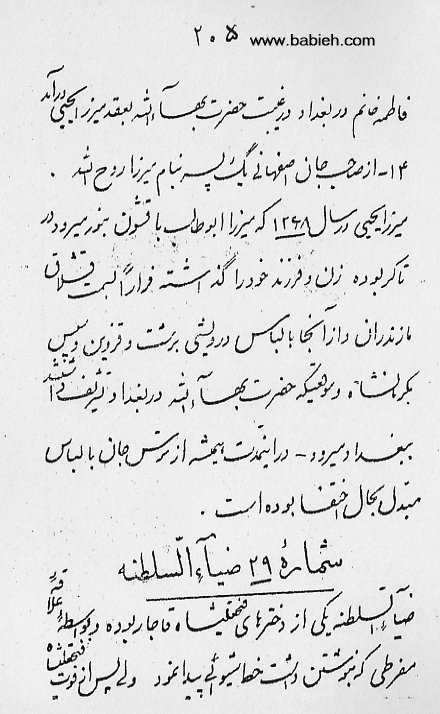 ۲۰۵ www.babieh.com
فاطمه خانم در بغداد در غیبت حضرت بهاءالله بعقد میرزا یحیی درآمد
۱۴- از صاحب جان اصفهانی یک پسر بنام میرزا روح الله .
میرزا یحیی در سال ۱۲۶۸ که میرزا ابوطالب با قشون بنور میرود در
تاکر بوده زن و فرزند خود را گذاشته فراراً بسمت قشلاق
مازندران و از آنجا با لباس درویشی برشت و قزوین و سپس
بکرمانشاه و موقعیکه حضرت بهاءالله در بغداد تشریف داشتند
ببغداد میرود - در اینمدت همیشه از ترس جان با لباس
مبدل بحال اختفا بوده است .
شمارهٔ ۲۹ ضیآءالسلطنه
ضیآءالسلطنه یکی از دخترهای فتحعلیشاه قاجار بوده و بواسطهٔ علاقهٔ
مفرطی که بنوشتن داشت خط نیکوئی پیدا نمود ولی پس از فوت فتحعلیشاه